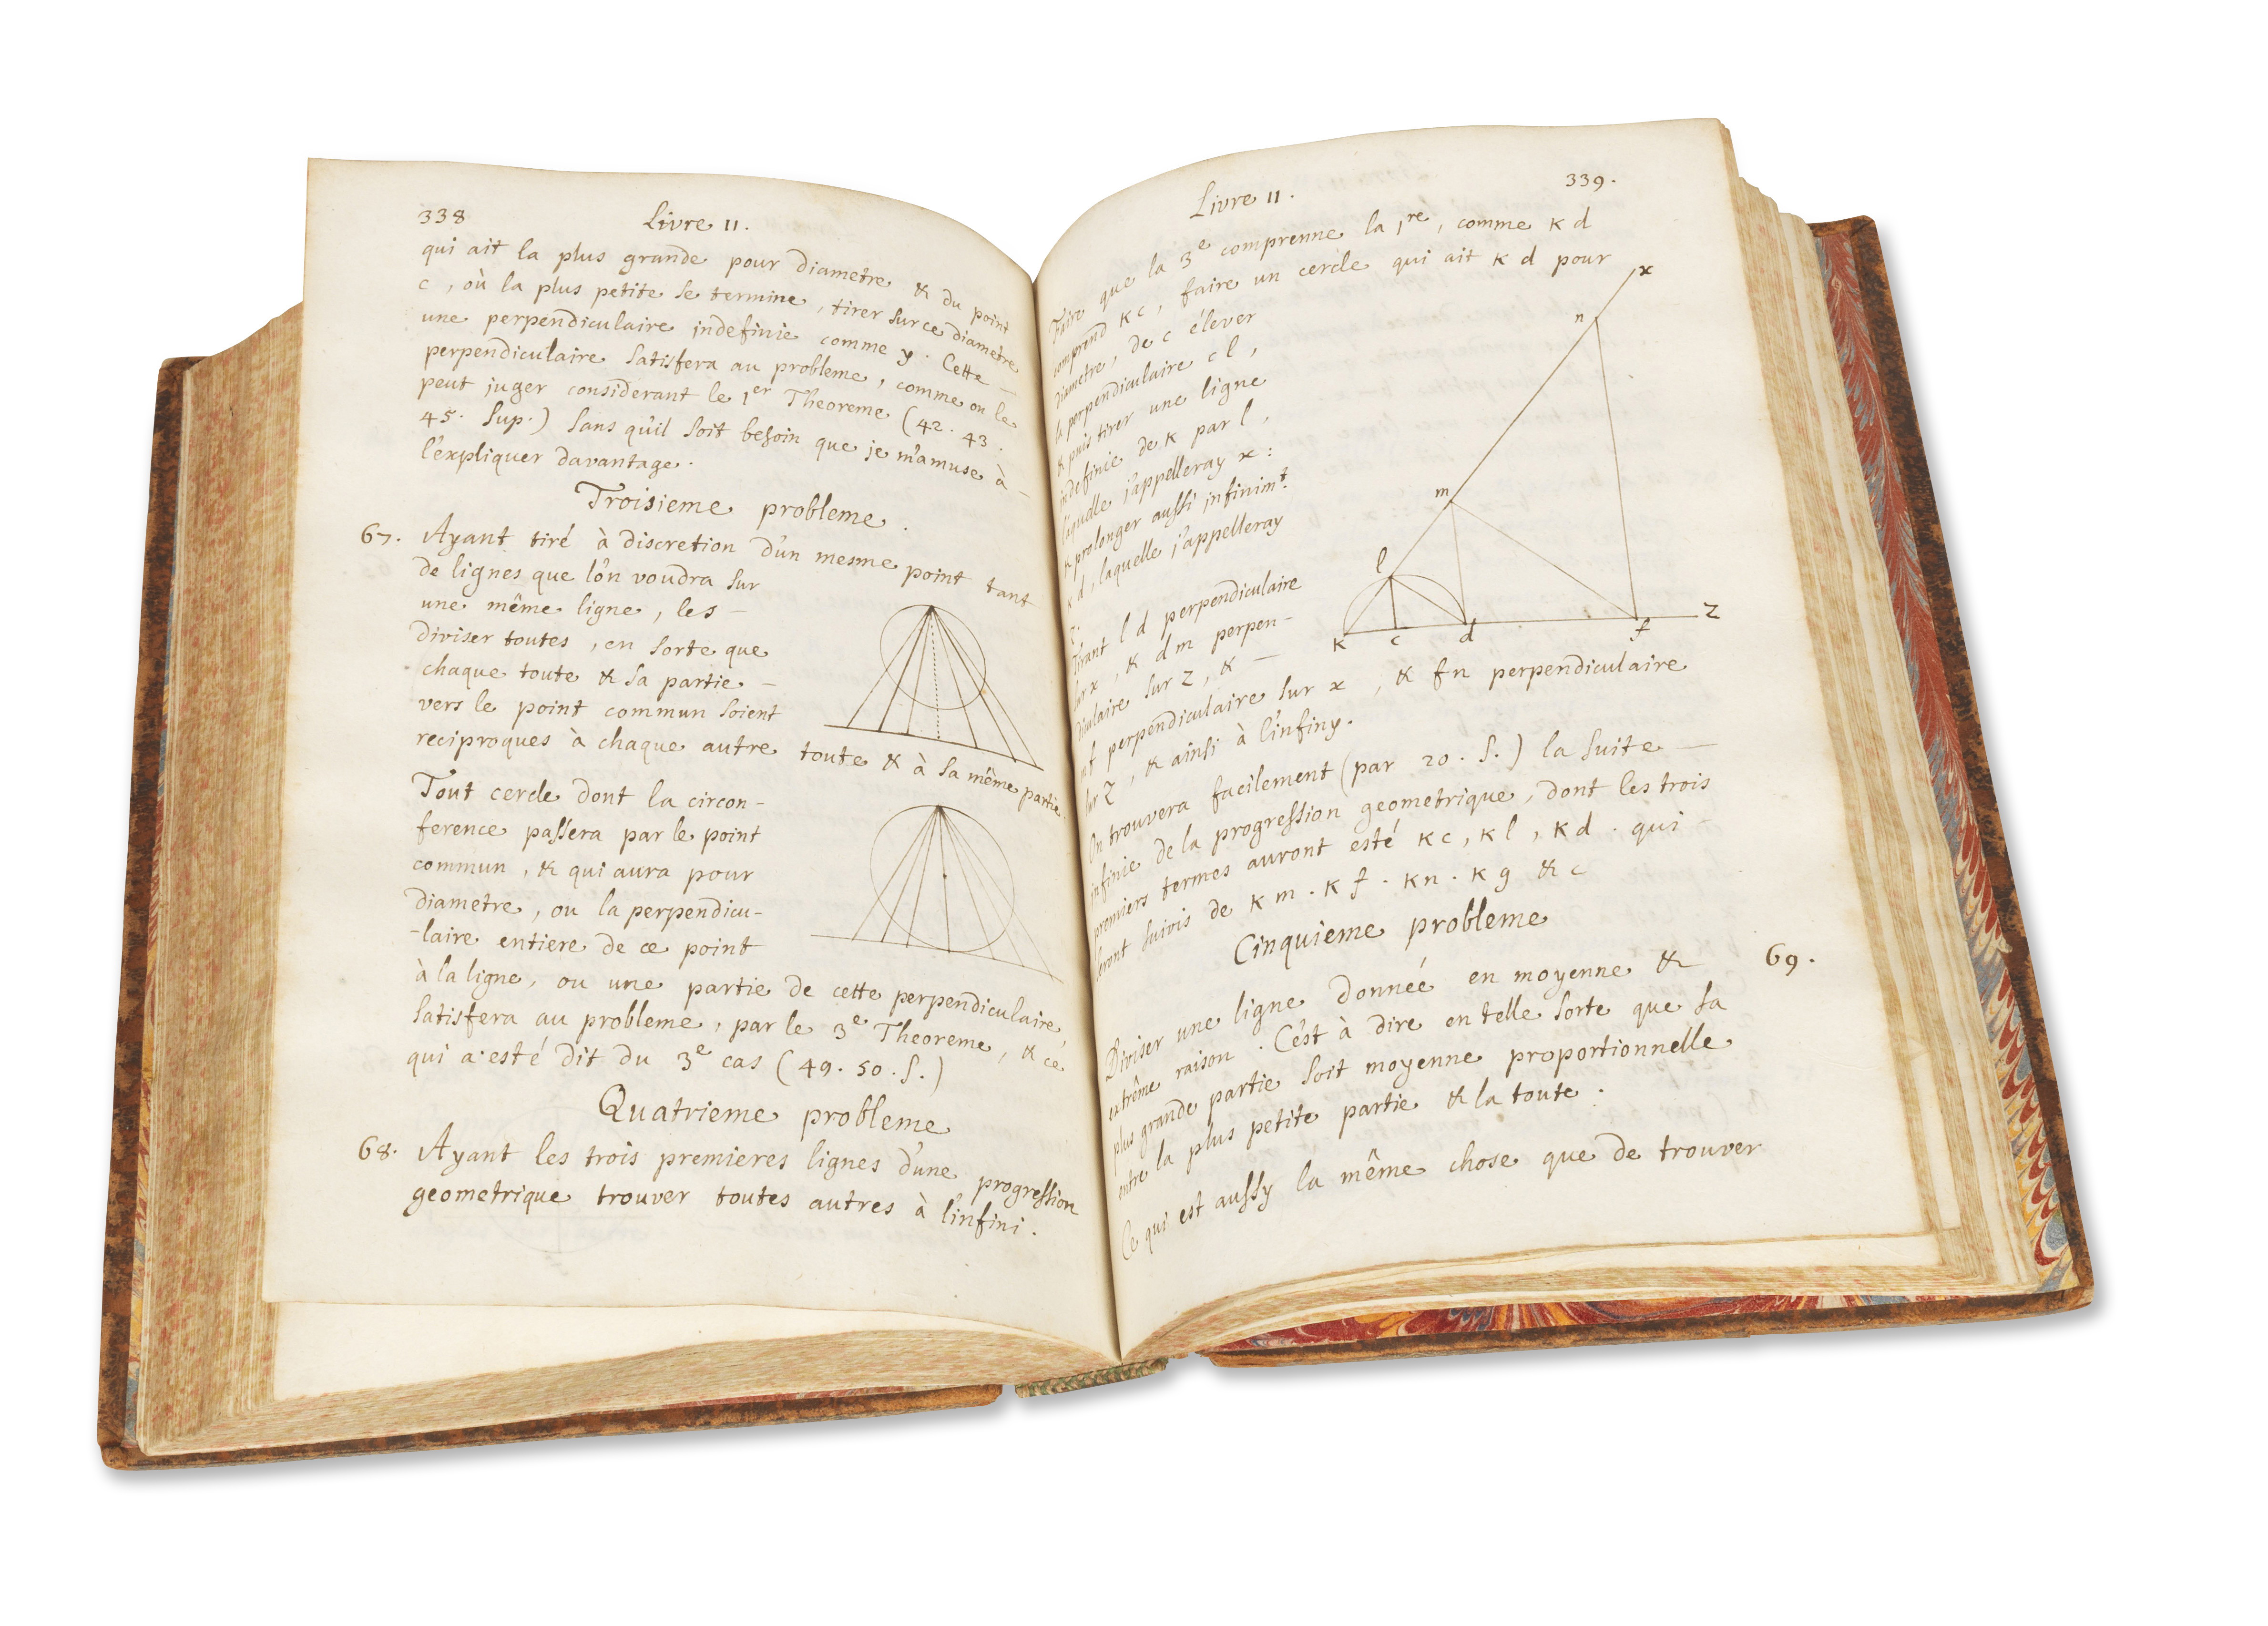 338 Livre 11.
qui ait la plus grande pour diametre & du point
c, où la plus petite se termine, tirer sur ce diametre
une perpendiculaire indefinie comme y. Cette —
perpendiculaire satisfera au probleme, comme on le
peut juger considerant le 1er Theoreme (42. 43.
45. sup.) sans qu'il soit besoin que je m'amuse à —
l'expliquer davantage.
Troisieme probleme.
67. Ayant tiré à discretion d'un mesme point tant
de lignes que l'on voudra sur
une même ligne, les —
diviser toutes, en sorte que
chaque toute & sa partie —
vers le point commun soient
reciproques à chaque autre toute & à sa même partie.
Tout cercle dont la circon-
ference passera par le point
commun, & qui aura pour
diametre, ou la perpendicu-
-laire entiere de ce point
à la ligne, ou une partie de cette perpendiculaire
satisfera au probleme, par le 3e Theoreme, & ce
qui a esté dit du 3e cas (49. 50. s.)
Quatrieme probleme
68. Ayant les trois premieres lignes d'une progression
geometrique trouver toutes autres à l'infini.
Livre 11. 339.
Faire que la 3e comprenne la 1re, comme K d
comprend K c, faire un cercle qui ait K d pour
diametre, de c élever
la perpendiculaire c l,
& puis tirer une ligne
indefinie de K par l,
laquelle j'appelleray x:
& prolonger aussi infinimt.
K d, laquelle j'appelleray
z.
Tirant l d perpendiculaire
sur x, & d m perpen-
diculaire sur z, & —
m f perpendiculaire sur x, & f n perpendiculaire
sur z, & ainsi à l'infiny.
x
n
m
l
K c d f z
On trouvera facilement (par 20. s.) la suite —
infinie de la progression geometrique, dont les trois
premiers termes auront esté K c, K l, K d. qui —
seront suivis de K m. K f. K n. K g &c
Cinquieme probleme
69.
Diviser une ligne donnée en moyenne &
extrême raison. C'est à dire en telle sorte que sa
plus grande partie soit moyenne proportionnelle
entre la plus petite partie & la toute.
Ce qui est aussy la même chose que de trouver